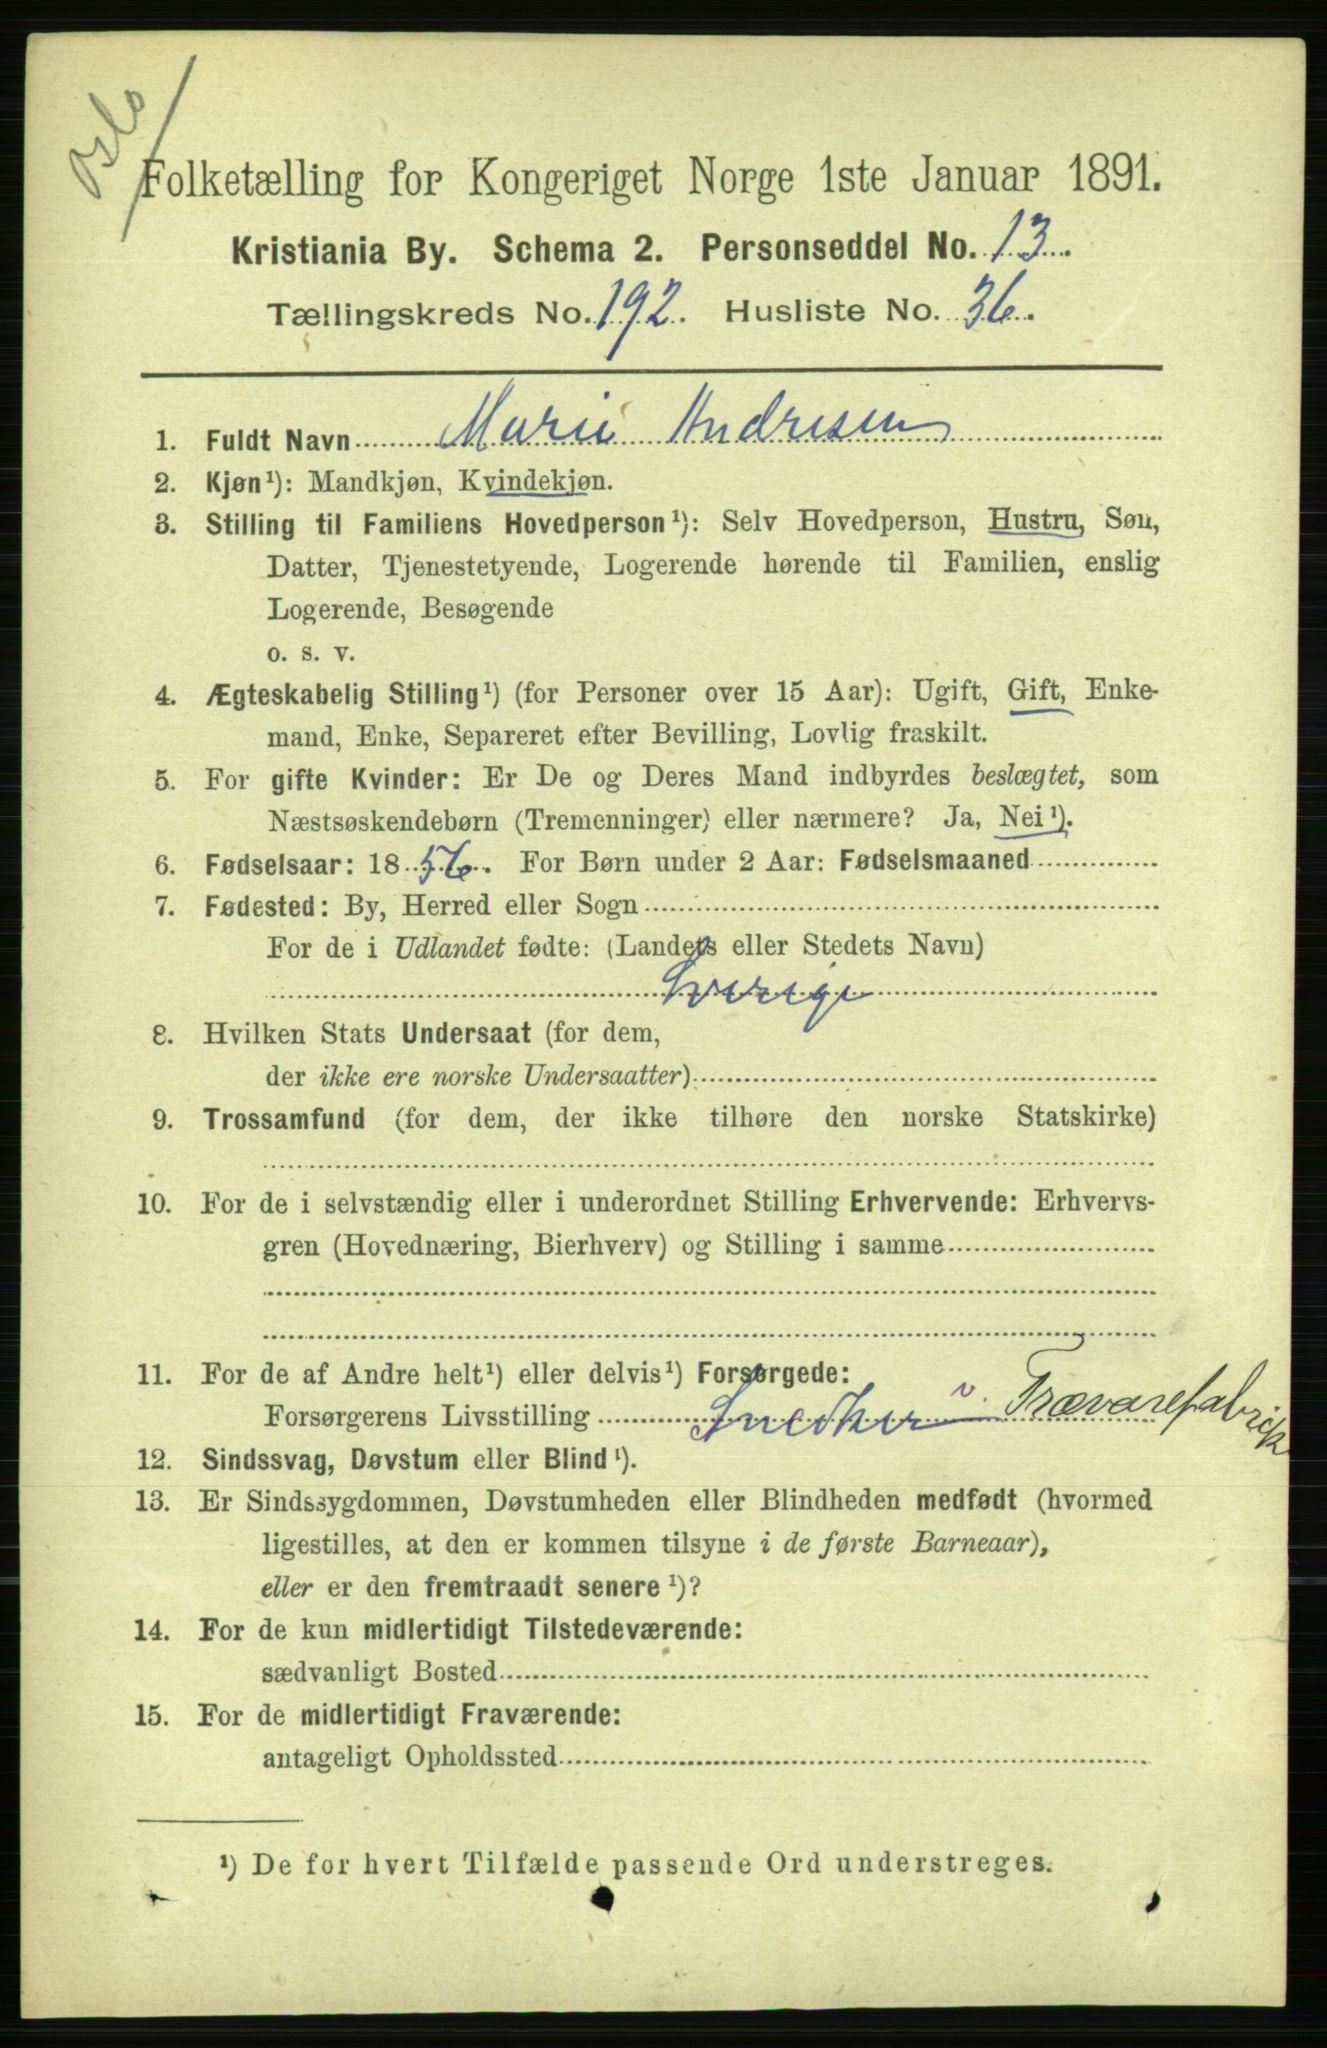 Oslo
Folketælling for Kongeriget Norge 1ste Januar 1891.
Kristiania By. Schema 2. Personseddel No. 13.
Tællingskreds No. 192. Husliste No. 36.
1. Fuldt Navn Marie Andresen
2. Kjøn¹): Mandkjøn, Kvindekjøn.
3. Stilling til Familiens Hovedperson¹): Selv Hovedperson, Hustru, Søn,
Datter, Tjenestetyende, Logerende hørende til Familien, enslig
Logerende, Besøgende
o. s. v.
4. Ægteskabelig Stilling¹) (for Personer over 15 Aar): Ugift, Gift, Enke-
mand, Enke, Separeret efter Bevilling, Lovlig fraskilt.
5. For gifte Kvinder: Er De og Deres Mand indbyrdes beslægtet, som
Næstsøskendebørn (Tremenninger) eller nærmere? Ja, Nei¹).
6. Fødselsaar: 1856. For Børn under 2 Aar: Fødselsmaaned
7. Fødested: By, Herred eller Sogn
For de i Udlandet fødte: (Landets eller Stedets Navn)
Sverige
8. Hvilken Stats Undersaat (for dem,
der ikke ere norske Undersaatter)
9. Trossamfund (for dem, der ikke tilhøre den norske Statskirke)
10. For de i selvstændig eller i underordnet Stilling Erhvervende: Erhvervs-
gren (Hovednæring, Bierhverv) og Stilling i samme
11. For de af Andre helt¹) eller delvis¹) Forsørgede:
Forsørgerens Livsstilling Snedker v. Trævarefabrik
12. Sindssvag, Døvstum eller Blind¹).
13. Er Sindssygdommen, Døvstumheden eller Blindheden medfødt (hvormed
ligestilles, at den er kommen tilsyne i de første Barneaar),
eller er den fremtraadt senere¹)?
14. For de kun midlertidigt Tilstedeværende:
sædvanligt Bosted
15. For de midlertidigt Fraværende:
antageligt Opholdssted
¹) De for hvert Tilfælde passende Ord understreges.